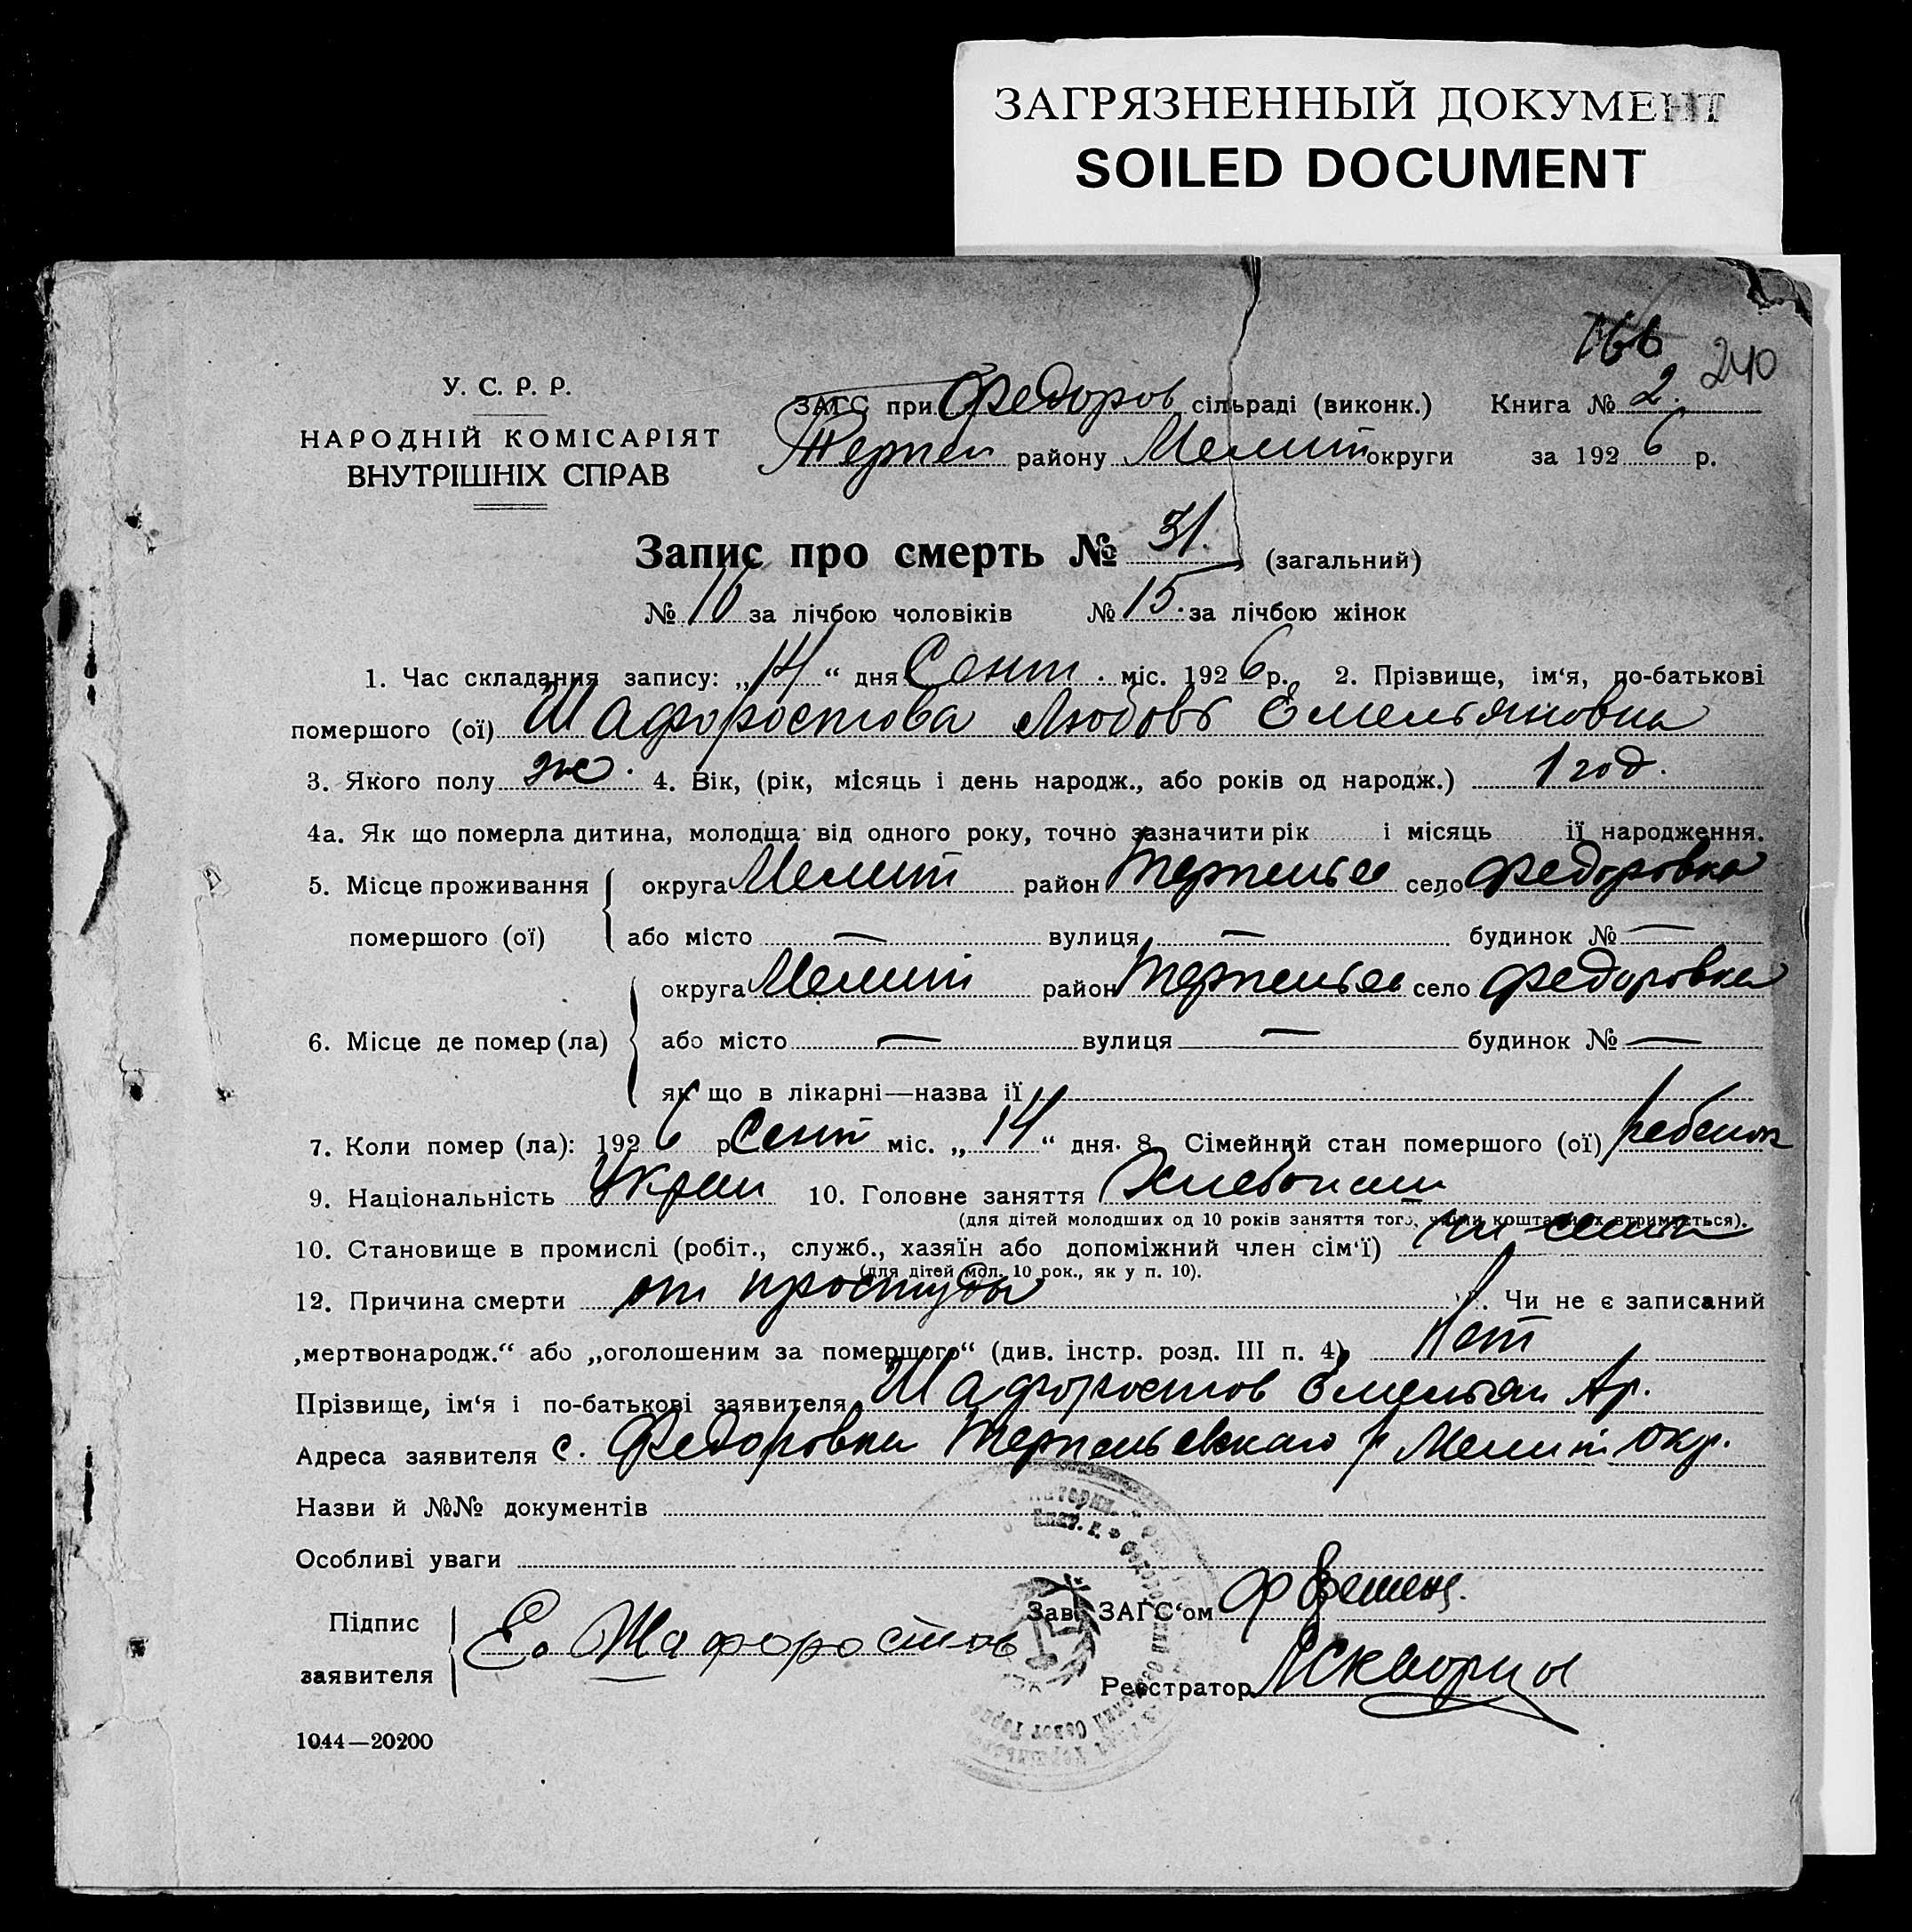 ЗАГРЯЗНЕННЫЙ ДОКУМЕНТ
SOILED DOCUMENT
166
240
У. С. Р. Р.
НАРОДНІЙ КОМІСАРІЯТ
ВНУТРІШНІХ СПРАВ
ЗАГС при Федоров сільраді (виконк.) Книга № 2.
Терпен району Мелит округи за 1926 р.
Запис про смерть № 31. (загальний)
№ 16 за лічбою чоловіків № 15. за лічбою жінок
1. Час складання запису: „14“ дня Сент. міс. 1926 р. 2. Прізвище, ім‘я, по-батькові
помершого (ої) Шафоростова Любовь Емельяновна
3. Якого полу ж. 4. Вік, (рік, місяць і день народж., або років од народж.) 1 год.
4а. Як що померла дитина, молодща від одного року, точно зазначити рік і місяць її народження.
5. Місце проживання округа Мелит район Терпенье село Федоровка
помершого (ої) або місто — вулиця — будинок № —
округа Мелит район село Федоровка
6. Місце де помер (ла) або місто — вулиця — будинок № —
як що в лікарні—назва її
7. Коли помер (ла): 1926 р Сент міс. „14“ дня. 8. Сімейний стан помершого (ої) ребенок
9. Національність Украин 10. Головне заняття Хлебопаш
(для дітей молодших од 10 років заняття того, чиїми коштами їх втримується).
10. Становище в промислі (робіт., служб., хазяїн або допоміжний член сім‘ї) чл семьи
(для дітей мол. 10 рок., як у п. 10).
12. Причина смерти от простуды Чи не є записаний
„мертвонародж.“ або „оголошеним за помершого“ (див. інстр. розд. III п. 4) Нет
Прізвище, ім‘я і по-батькові заявителя Шафоростов Емельян Ар.
Адреса заявителя с. Федоровка Терпеньевскаго р Мелит окр.
Назви й №№ документів
Особливі уваги
Підпис
заявителя Е. Шафоростов
Зав. ЗАГС‘ом
Реєстратор
1044—20200